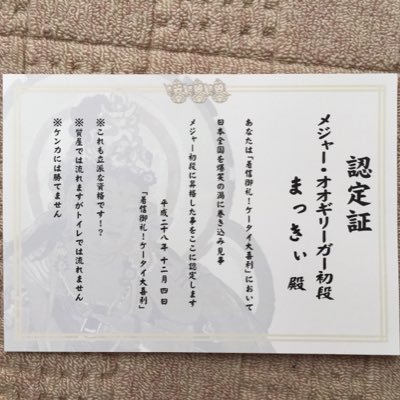 認定証
メジャー・オオギリーガー初段
まっきぃ 殿
あなたは「着信御礼！ケータイ大喜利」において
日本全国を爆笑の渦に巻き込み見事
メジャー初段に昇格した事をここに認定します
平成二十八年 十二月 四日
「着信御礼！ケータイ大喜利」
※これも立派な資格です！？
※質屋では流れますがトイレでは流れません
※ケンカには勝てません